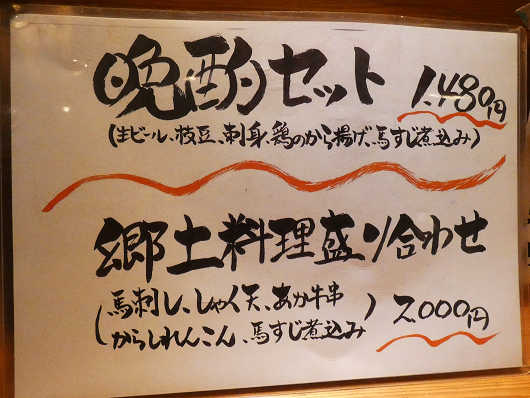 晩酌セット 1,480円
(生ビール、枝豆、刺身、鶏のから揚げ、馬すじ煮込み)
郷土料理盛り合わせ
(馬刺し、しゃく天、あか牛串
からしれんこん、馬すじ煮込み) 2,000円